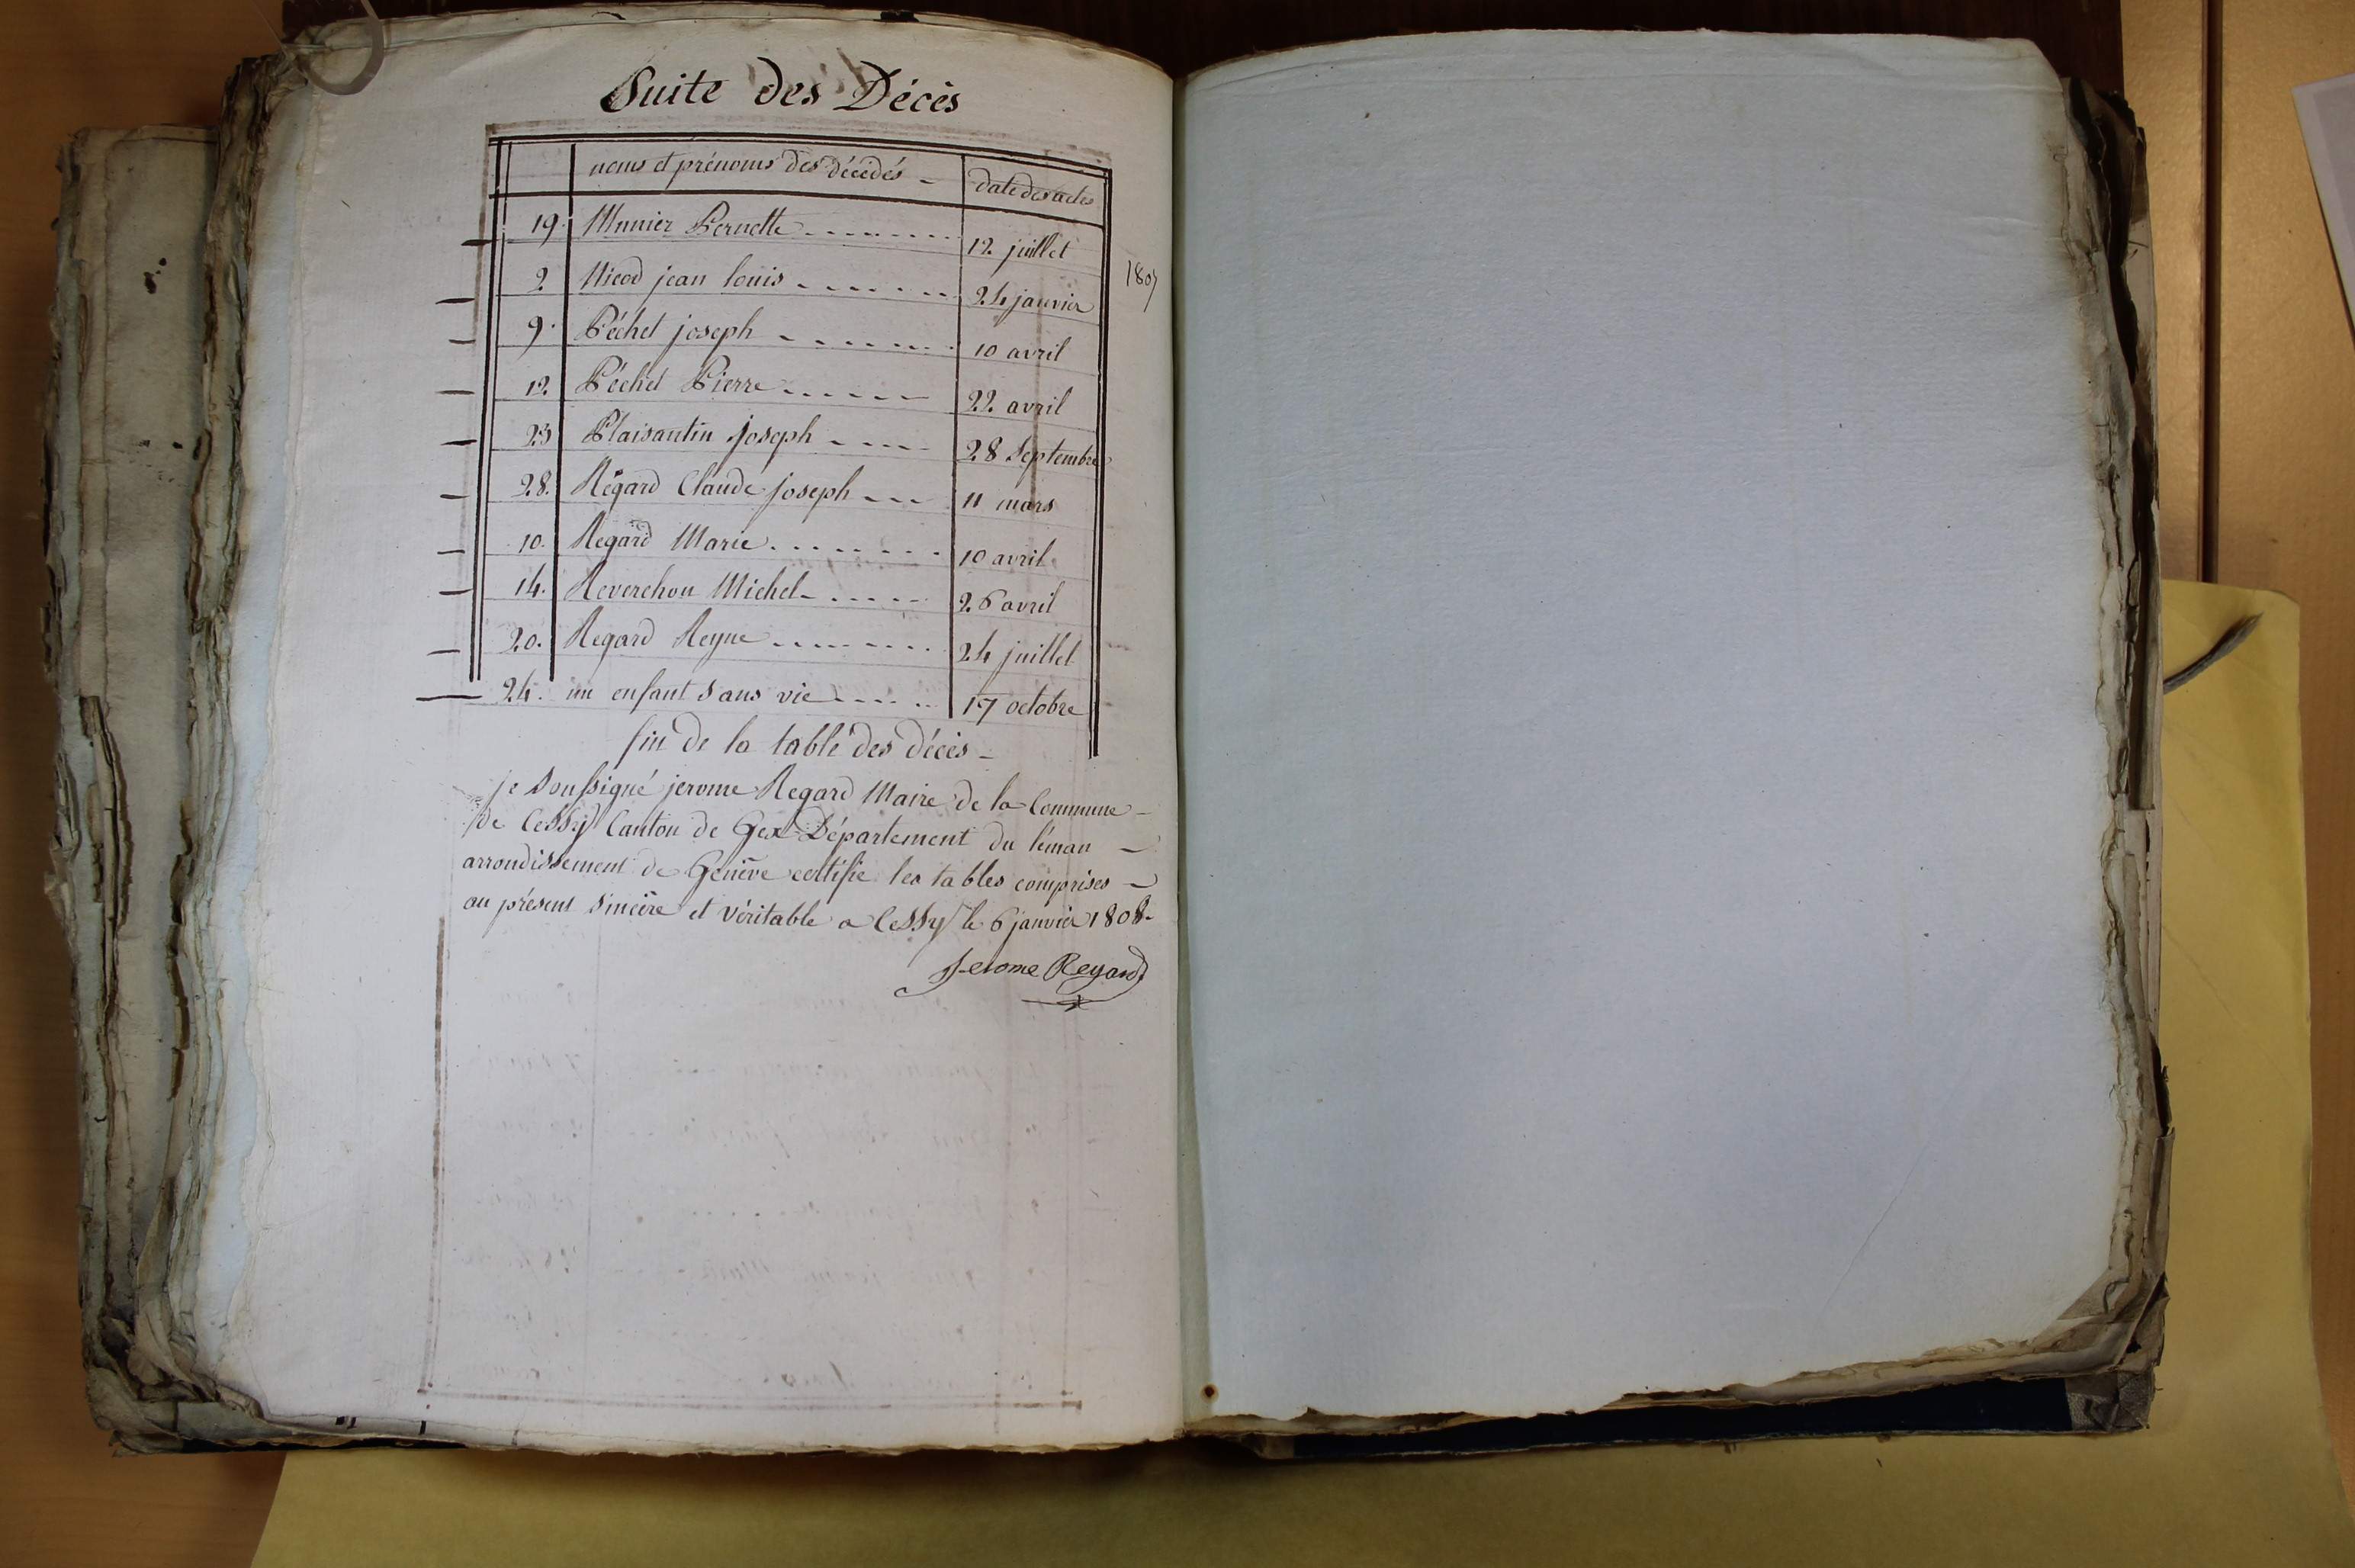 Suite des Décès
noms et prénoms des décédés - date des actes
19. Munier Pernette 12 juillet
2 Nicod jean louis 24 janvier 1807
9. Péchet joseph 10 avril
12. Péchet Pierre 22 avril
23 Plaisantin joseph 28 Septembre
28. Régard Claude joseph 11 mars
10. Regard Marie 10 avril
14. Reverchon Michel 26 avril
20. Regard Reyne 24 juillet
24. un enfant sans vie 17 octobre
fin de la table des décès -
je Soussigné jerome Regard Maire de la Commune -
de Cessy Canton de Gex Département du léman -
arrondissement de Genève certifie les tables comprises -
au présent Sincère et véritable a Cessy le 6 janvier 1808-
Jerome Regard